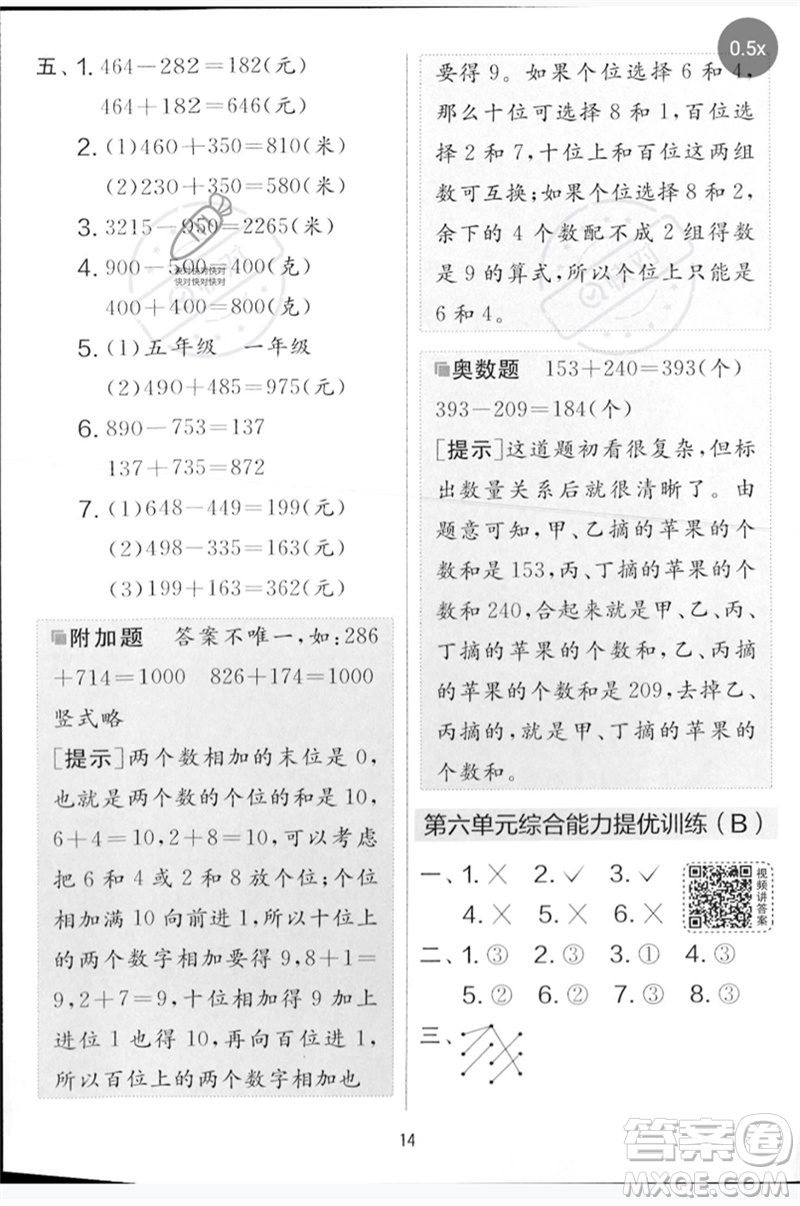 0.5x
五、1. 464－282＝182(元)
464＋182＝646(元)
2. (1)460＋350＝810(米)
(2)230＋350＝580(米)
3. 3215－950＝2265(米)
4. 900－500＝400(克)
400＋400＝800(克)
5. (1)五年级 一年级
(2)490＋485＝975(元)
6. 890－753＝137
137＋735＝872
7. (1)648－449＝199(元)
(2)498－335＝163(元)
(3)199＋163＝362(元)
附加题 答案不唯一,如:286
＋714＝1000 826＋174＝1000
竖式略
[提示]两个数相加的末位是0,
也就是两个数的个位的和是10,
6＋4＝10,2＋8＝10。可以考虑
把6和4或者2和8放个位;个位
相加满10向前进1,所以十位上
的两个数字相加要得9,8＋1＝
9,2＋7＝9,十位相加得9加上
进位1也得10,再向百位进1,
所以百位上的两个数字相加也
要得9。如果个位选择6和4,
那么十位可选择8和1,百位选
择2和7,十位上和百位这两组
数可互换;如果个位选择8和2,
余下的4个数配不成2组得数
是9的算式,所以个位上只能是
6和4。
奥数题 153＋240＝393(个)
393－209＝184(个)
[提示]这道题初看很复杂,但标
出数量关系后就很清晰了。由
题意可知,甲、乙摘的苹果的个
数和是153,丙、丁摘的苹果的个
数和240,合起来就是甲、乙、丙、
丁摘的苹果的个数和,再减去乙、
丙摘的苹果的个数和是209,去掉乙、
丙摘的,就是甲、丁摘的苹果的
个数和。
第六单元综合能力提优训练(B)
一、1. ✕ 2. ✓ 3. ✓
4. ✕ 5. ✕ 6. ✕
视频讲答案
二、1. ③ 2. ③ 3. ① 4. ③
5. ② 6. ② 7. ③ 8. ③
三、
14
快对快对快对
快对快对快对
答案卷
MXQE.COM